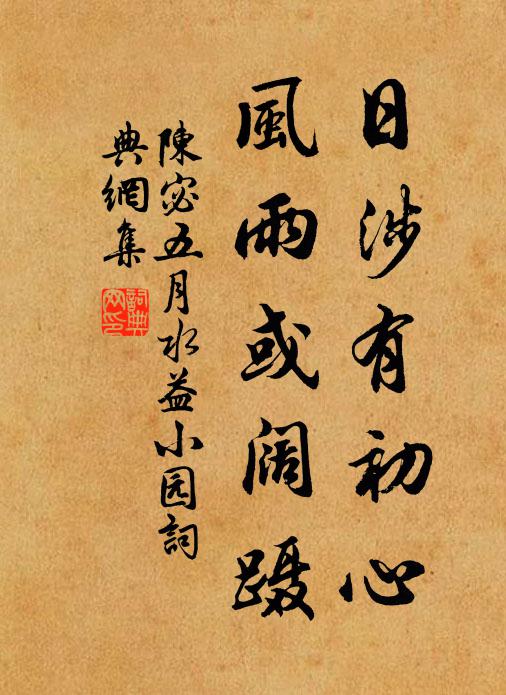 日涉有初心
風雨或阔蹑
陳宓五月水益小园詞
典網集
詞典网印